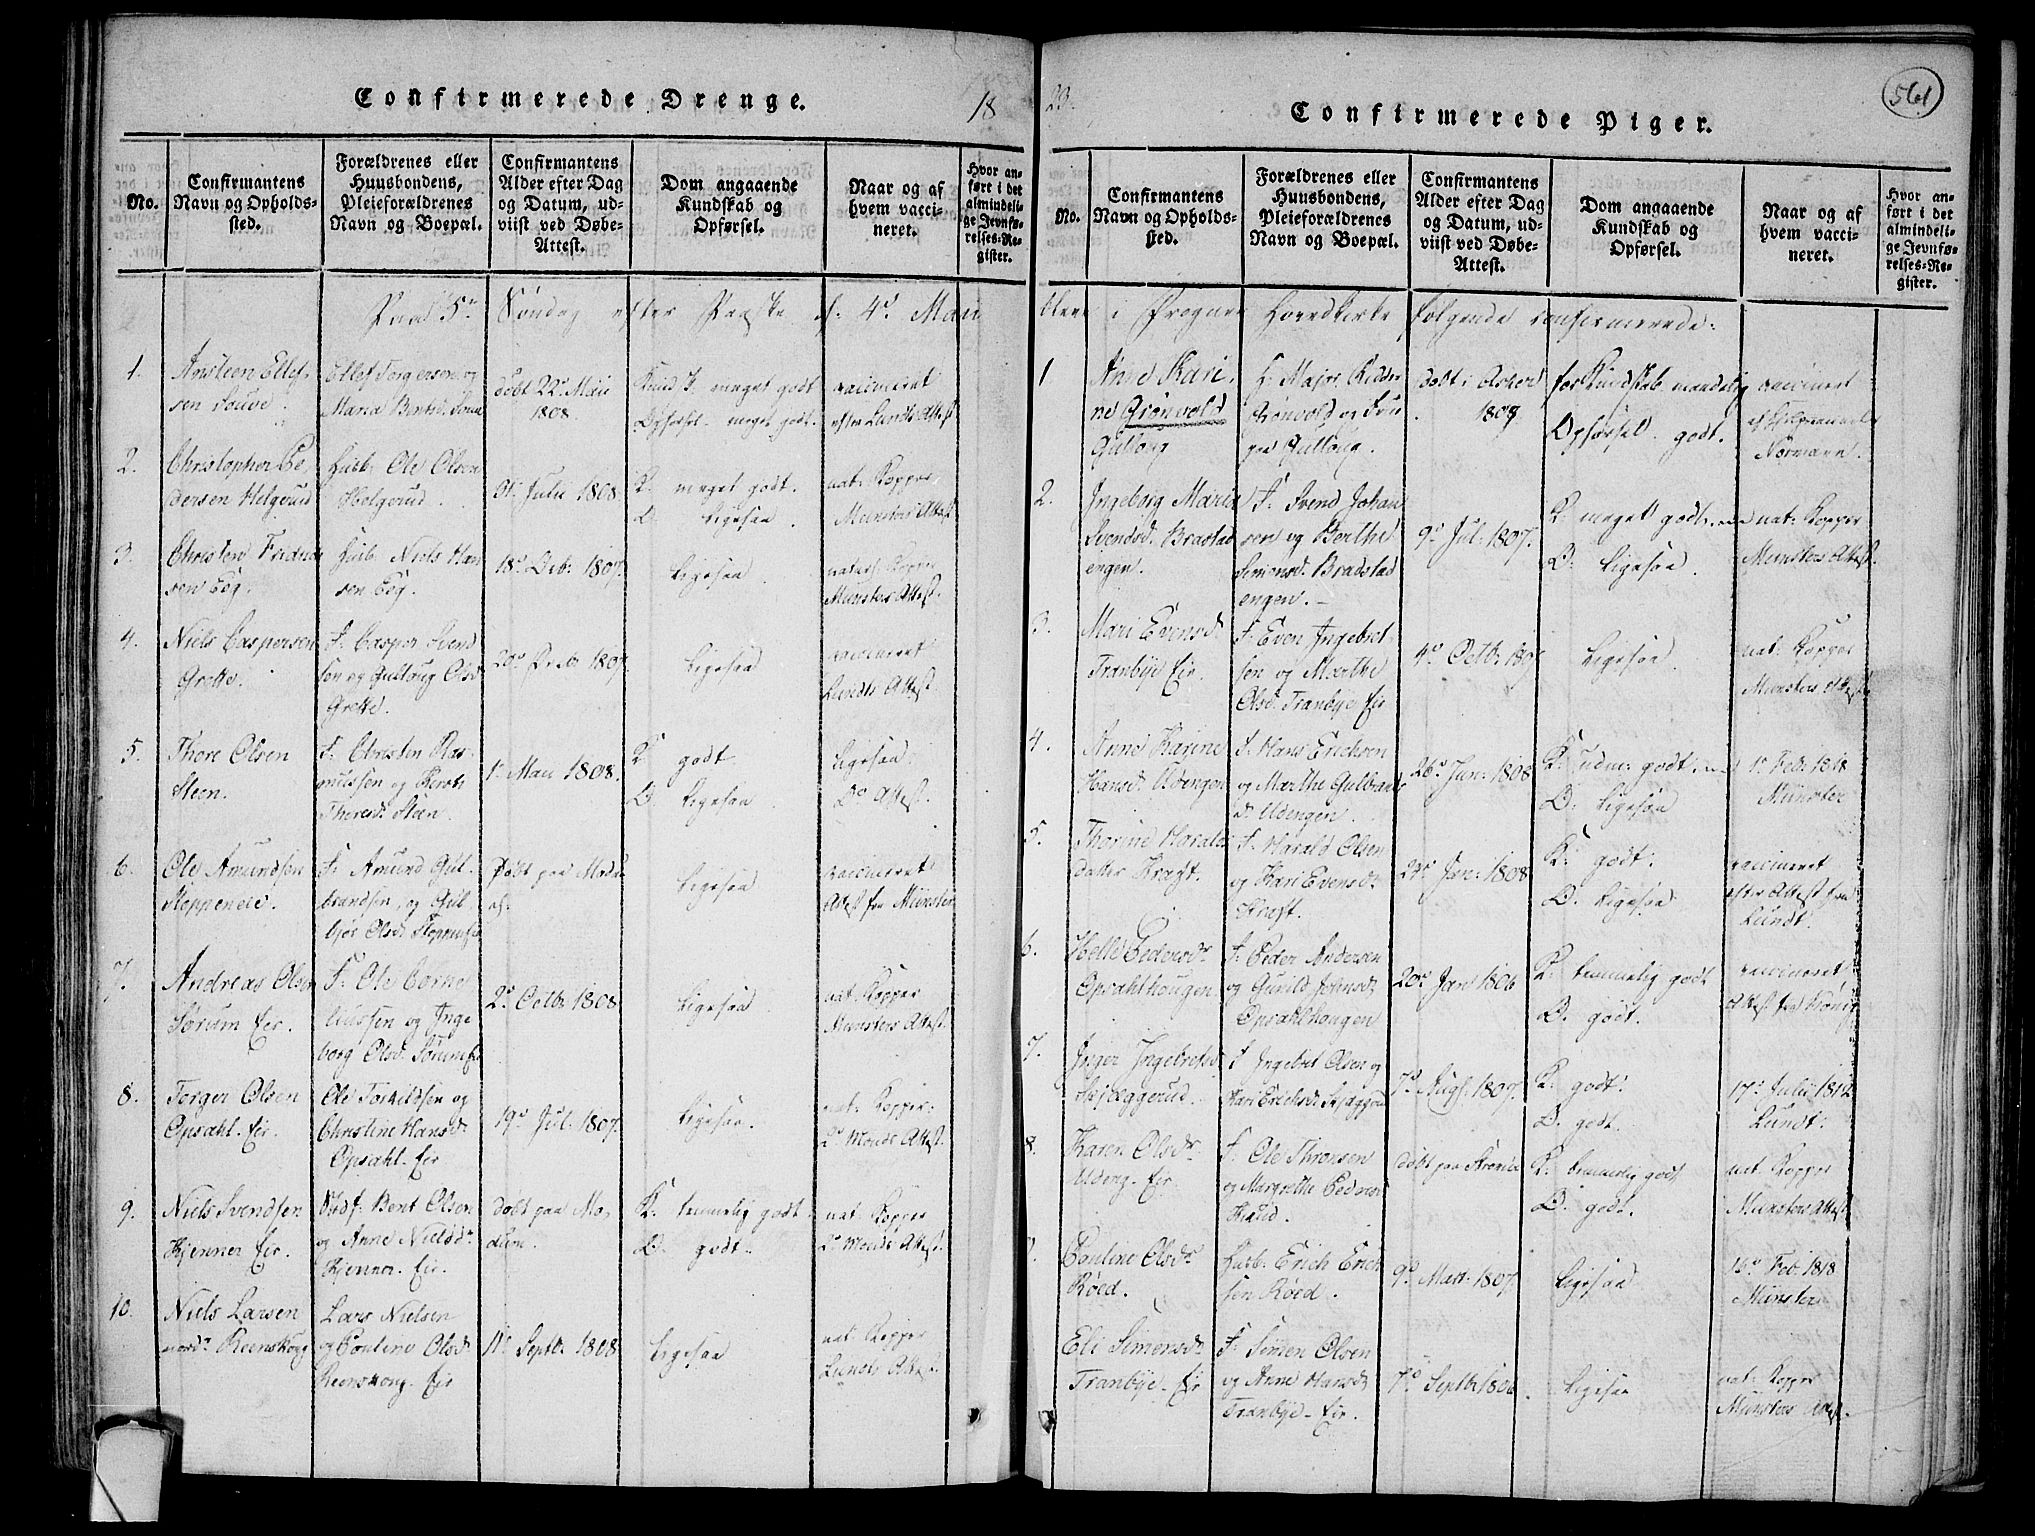 Confirmerede Drenge.
18
No.
Confirmantens
Navn og Opholds-
sted.
Forældrenes eller
Huusbondens,
Pleieforældrenes
Navn og Boepæl.
Confirmantens
Alder efter Dag
og Datum, ud-
viist ved Døbe-
Attest.
Dom angaaende
Kundskab og
Opførsel.
Naar og af
hvem vacci-
neret.
Hvor an-
ført i det
almindeli-
ge Jevnfø-
relses-Re-
gister.
Paa 5te Søndag efter Paaske d: 4de Maii
1.
Ansteen Ellef-
sen
Ellef Torgersen og
Maria
døbt 22de Maii
1808.
meget godt
Opførsel meget godt.
vaccineret
efter Lundts Attest
2.
Christopher Pe-
dersen Helgerud
Husb: Ole Olsen
Helgerud.
31te Julii 1808
K. meget godt.
O. Ligesaa.
nat: Kopper
Münsters Attest
3.
Christen
sen Eeg.
Husb: Niels Han
sen Eeg.
18de Deb: 1807.
Ligesaa.
naturl. Kopper
Münsters Attest.
4.
Niels Caspersen
Grette.
F: Casper Svend
sen og Gulloug Olsd.
Grette.
1807
Ligesaa
vaccineret
Lundts Attest.
5.
Thore Olsen
Steen.
F: Christen Ras-
mussen og Berthe
Thoresd: Steen.
1te Maii 1808.
K. godt
O. Ligesaa.
Ligesaa.
Do Attest.
6.
Ole Amundsen
F: Amund Gul-
brandsen, og Gul-
bjør Olsd.
Døbt paa Modum
Ligesaa
vaccineret
Attest fra Münster
7.
Andreas Olsen
Sørum Eir.
F: Ole Corne-
liussen og Inge-
borg Olsd. Sørum Eir
2de Octb: 1808.
Ligesaa
nat: Kopper
Münsters Attest
8.
Torger Olsen
Opsahl. Eir.
Ole Torkildsen og
Christine Hansd.
Opsahl. Eir
19de Jul: 1807.
Ligesaa.
nat: Kopper:
9.
Niels Svendsen
Kjenner Eir.
Bent Olsen
og Anne Nielsd.
Kjenner. Eir.
døbt paa Mo-
dum.
K. temmelig godt.
O. godt.
nat: Kopper
10.
Niels Larsen
Reenskoug
Lars Nielsen
og Pouline Olsd.
Reenskoug. Eir
11te Septb: 1808.
Ligesaa
nat: Kopper
Lundts Attest.
23.
561
Confirmerede Piger.
No.
Confirmantens
Navn og Opholds-
sted.
Forældrenes eller
Huusbondens,
Pleieforældrenes
Navn og Boepæl.
Confirmantens
Alder efter Dag
og Datum, ud-
viist ved Døbe-
Attest.
Dom angaaende
Kundskab og
Opførsel.
Naar og af
hvem vacci-
neret.
Hvor an-
ført i det
almindeli-
ge Jevnfø-
relses-Re-
gister.
bleve i Hovedkirke følgende confirmerede:
1.
Anne Kari-
ne Grønvold
Gulloug
F: Major Ridder
Grønvold og Frue
paa Gulloug.
døbt i Asker
1809
for Kundskab maadelig
Opførsel. godt.
vaccineret
Normann.
2.
Ingeborg Maria
Svendsd. Brastad
engen.
F: Svend Johan
sen og Berthe
Simensd. Bradstad
engen.
9de Jul: 1807.
K. meget godt.
O: Ligesaa.
nat: Kopper
Münsters Attest.
3.
Mari Evensd.
Tranbye Eir.
F: Even Ingebret
sen og Marthe
Olsd. Tranbye Eir
4de Octb:
Ligesaa.
nat: Kopper
Münsters Attest
4.
Anne Karine
Hansd. Udengen
F: Hans Ericksen
og Marthe Gulbrands
d. Udengen.
26de Jan: 1808
K. udm: godt.
O. Ligesaa
1te Feb: 1818
Münster
5.
Thorine Haralds
datter Kragt.
F: Harald Olsen
og Kari Evensd.
Kragt.
24de Jan: 1808
K. godt.
O. Ligesaa.
vaccineret
efter Attest fra
Lundt.
6.
Helle Pedersd.
Opsahlhougen.
F: Peder Andersen
og Gunild Johnsd.
Opsahlhougen
20de Jan 1806
K. temmelig godt
O. godt.
vaccineret
Attest fra Kønig
7.
Inger Ingebretsd.
Skjæggerud.
F Ingebret Olsen og
Kari Ericksd.
7de Aug: 1807.
K. godt.
O. godt.
17de Julii 1812
Lundt.
8.
Karen Olsd.
Udeng. Eir.
F: Ole Thronsen
og Margrethe Pedersd
døbt paa Strømsø
K: temmelig godt
O: godt.
nat: Kopper
Münsters Attest
Pouline Olsd.
Røed.
Husb: Erich Erich
sen Røed.
9de Mart: 1807.
Ligesaa
Feb: 1818
Münster
Eli Simensd.
Tranbye. Eir
F: Simen Olsen
og Anne Hansd.
Tranbye. Eir.
7de Septb: 1806
Ligesaa
nat: Kopper
Münsters Attest.